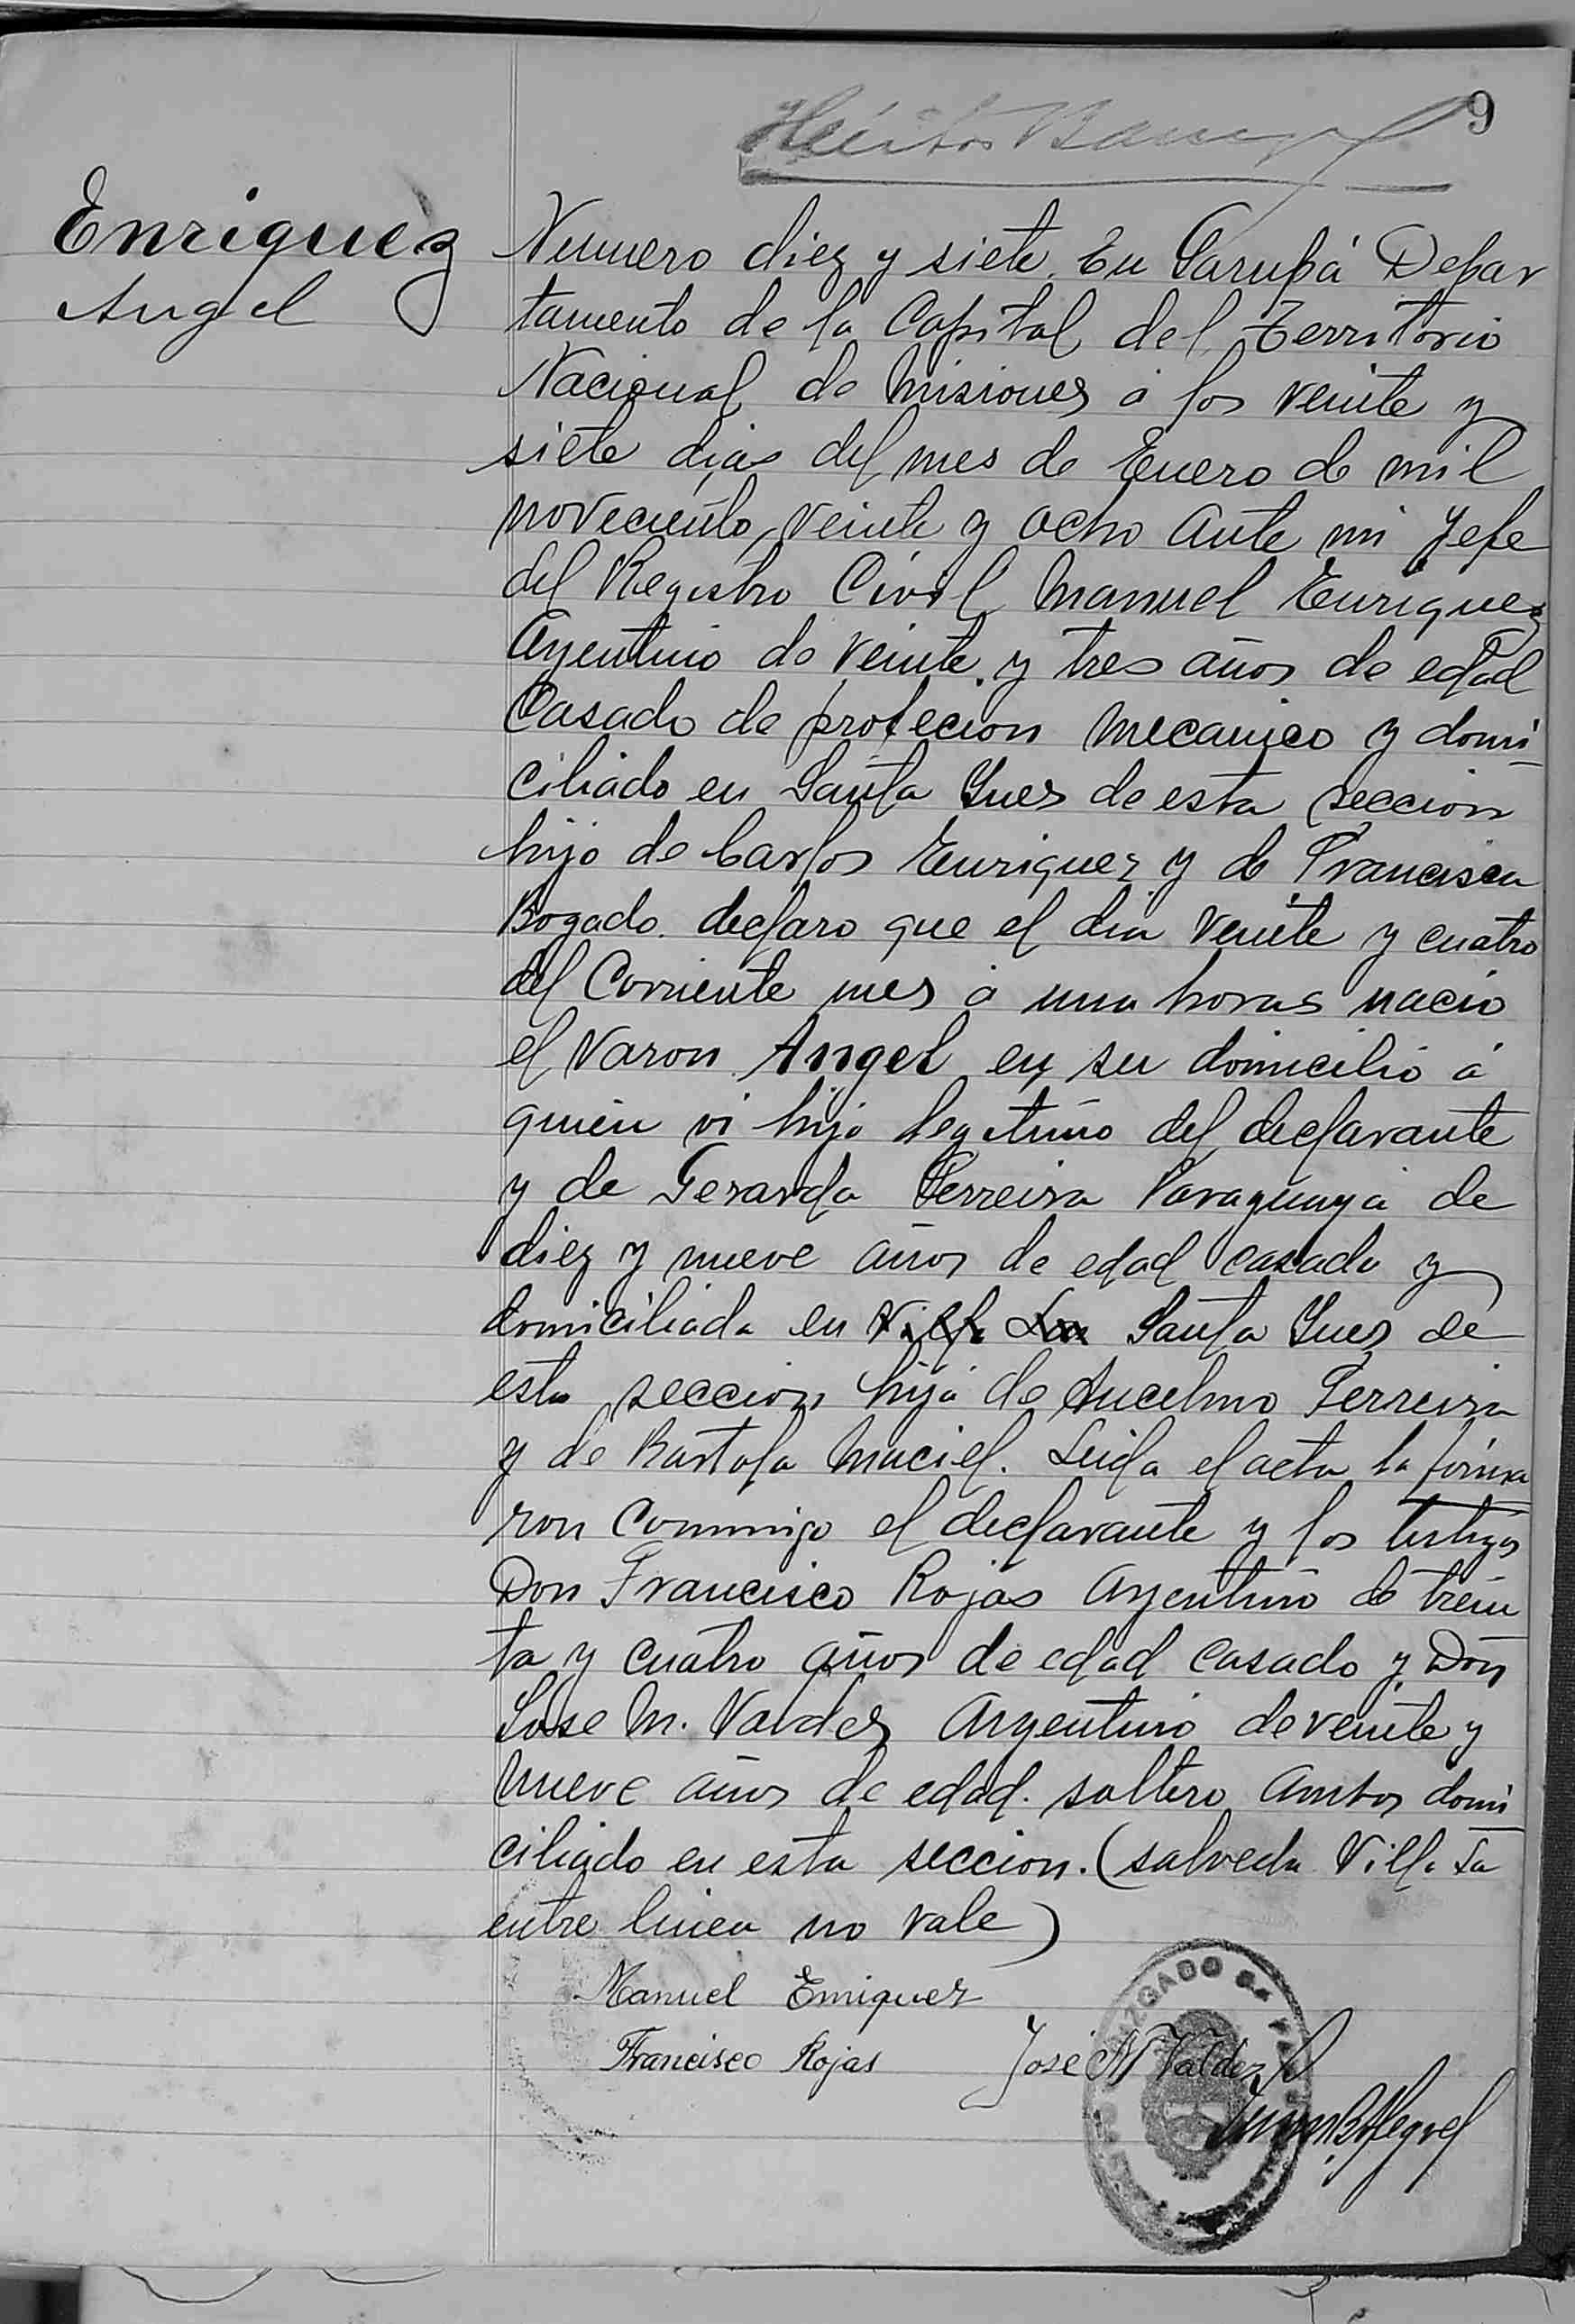 9
Enriquez
Angel
Numero diez y siete. En Garupá Depar
tamento de la Capital del Territorio
Nacional de Misiones á los veinte y
siete dias del mes de Enero de mil
novecientо veinte y ocho ante mi Jefe
del Registro Civil Manuel Enriquez
Argentino de veinte y tres años de edad
Casado de profecion mecanico y domi
ciliado en Santa Ines de esta seccion
hijo de Carlos Enriquez y de Francisca
Bogado. declaro que el dia veinte y cuatro
del Corriente mes á una horas nacio
el varon Angel en su domicilio á
quien vi hijo legitimo del declarante
y de Gerarda Ferreira Paraguaya de
diez y nueve años de edad casada y
domiciliada en Villa Lan Santa Ines de
esta seccion hija de Ancelmo Ferreira
y de Bartola Maciel. Leida el acta la firma
ron conmigo el declarante y los testigos
Don Francisco Rojas Argentino de trein
ta y cuatro años de edad casado y Don
Jose M. Valdez Argentino de veinte y
nueve años de edad. soltero ambos domi
ciliado en esta seccion. (salveda Villa La
entre linea no vale)
Manuel Enriquez
Francisco Rojas José M Valdez
JUZGADO DE PAZ